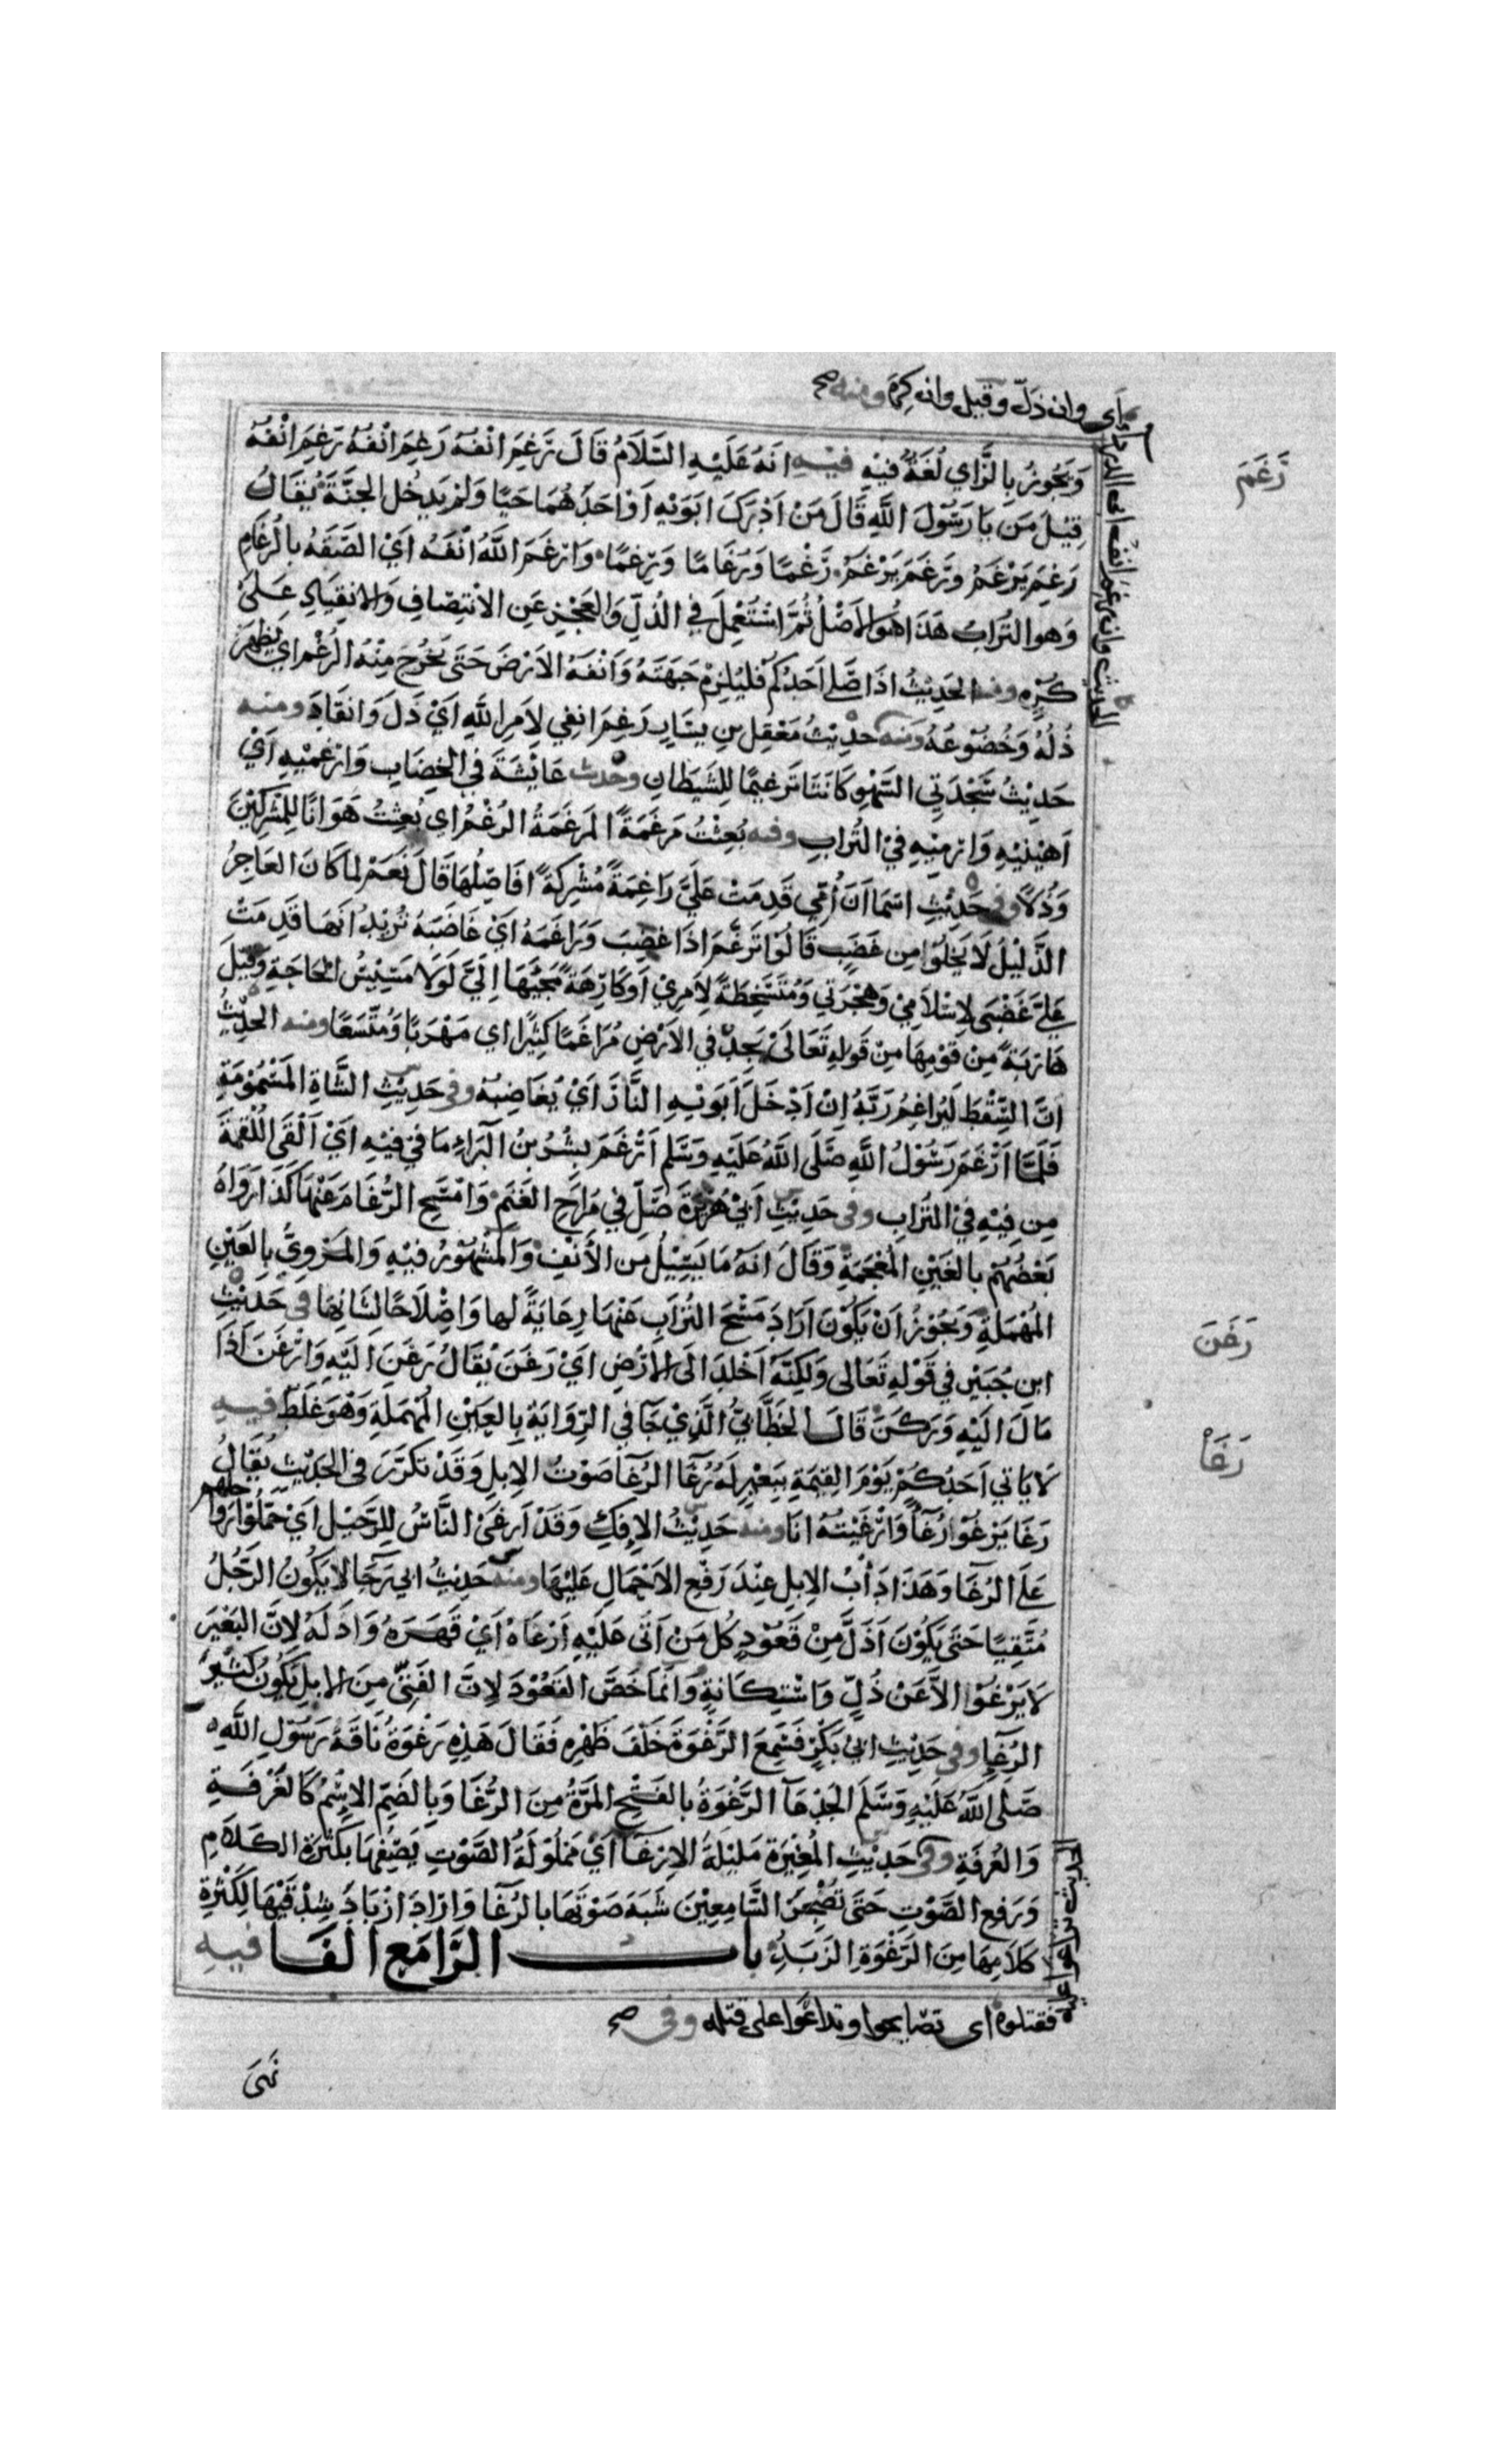 اي وان ذلّ وقيل وان كره ومنه صح
الحديث وان رغم انف ابى الدرداء
رَغَمَ
وَيَجُوزُ بِالزَّاي لُغَةً فِيْهِ فيه انَهُ عَلَيْهِ السَّلَامُ قَالَ رَغِمَ انْفُهُ رَغِمَ انْفُهُ رَغِمَ انْفُهُ
قِيْلَ مَن يَا رَسُوْلَ اللَّهِ قَالَ مَنْ اَدْرَكَ ابَوَيْهِ اَوْ اَحَدَهُمَا حَيًّا وَلَمْ يَدخُلِ الجَنَّةَ يُقَالُ
رَغِمَ يَرْغَمُ ورَغَمَ يَرْغَمُ رَغْمًا وَرُغَامًا وَرِغمًا وَارْغَمَ اللَّهُ انْفَهُ اَيْ الصَقَهُ بالرُغَامِ
وَهو التُرَابُ هَذَا هُوَ الاَصْلُ ثُمَّ اسْتُعْمِلَ فِي الذُلِّ وَالعَجْزِ عَنِ الانْتِصَافِ وَالانقِيَادِ عَلىٰ
كُرْهٍ ومنه الحَدِيْثُ اذَا صَلَّى اَحَدُكُمْ فَليُلزِمْ جَبَهَتَهُ وَاَنْفَهُ الاَرْضَ حَتىٰ يَخْرُجَ مِنْهُ الرُغْمُ اي يَظهَرَ
ذُلُهُ وَخُضُوْعَهُ ومنه حَدِيْثُ مَعْقِلِ بنِ يسَارٍ رَغِمَ انفِي لِاَمرِ اللهِ اَيْ ذَلَ وَانقَادَ ومنه
حَدِيْثُ سَجْدَتِي السَهْوِ كَانَتَا تَرغِيمًا لِلشَيْطَانِ وحديث عَائِشَةَ فِي الخِضَابِ وَارْغِمْيهِ اَيْ
اَهِيْنيْهِ وَارْمِيْهِ فِيْ التُرَابِ وفيه بُعِثْتُ مَرغَمَةً المَرغَمَةُ الرُغْمُ اي بُعِثْتُ هَوَانًا لِلمُشْرِكِيْنَ
وَذُلًا وفي حَدِيْثِ اسْمَا اَنَ اُمِّي قَدِمَتْ عَلَيَّ رَاغِمَةً مُشْرِكَةً افَاصِلُهَا قَالَ نَعَمْ لمَا كَانَ العَاجِزُ
الذَّلِيْلُ لَا يَخْلُوا مِن غَضَبٍ قَالُوْا تَرَغَّمَ اذَا غَضِبَ وَرَاغَمَهُ اَيْ غَاضَبَهُ تُرِيْدُ انَهَا قَدِمَتْ
عَليَّ غَضْبَى لِاسْلَامِيْ وَهِجْرَتِي وَمُتَسَخِطَةً لِاَمرِيْ اَو كَارِهَةً مَجِيْئَهَا اِلَيَّ لَولَا مَسِيْسُ الحَاجَةِ وقيْلَ
هَارِبَةً مِنْ قَوْمِهَا مِنْ قَولِهِ تَعَالَىٰ يَجِدْ فِي الاَرْضِ مُرَاغَمًا كَثِيْرًا اي مَهْرَبًا وَمُتَّسَعًا ومنه الحَدِيْثُ
اَنَّ السِّقْطَ لَيُرَاغِمُ رَبَّهُ اِنْ اَدْخَلَ اَبَوَيْهِ النَّارَ اَيْ يُغَاضِبُهُ وفي حَدِيْثِ الشَّاةِ المَسْمُوْمَةِ
فَلمَّا اَرْغَمَ رَسُوْلُ اللهِ صَلَّى اللهُ عَلَيْهِ وَسَلَّم اَرْغَمَ بِشْرُ بنُ البَرَاءِ مَا فِي فِيْهِ اَيْ اَلْقَى اللُقْمَةَ
مِن فِيْهِ فِيْ التُرَابِ وفي حَدِيْثِ اَبِيْ هُرَيْرَةَ صَلِّ فِي مَرَاحِ الغَنَمِ وَامْسَحِ الرُغَامَ عَنْهَا كَذَا رَوَاهُ
بَعْضُهُمْ بالغَيْنِ المُعْجَمَةِ وَقَالَ انَهُ مَا يَسِيْلُ مِن الاَنْفِ وَالمَشْهُوْرُ فِيْهِ وَالمَروِيُّ بِالعَيْنِ
المُهْمَلَةِ وَيَجُوْزُ اَنْ يَكُوْنَ اَرَادَ مَسْحَ التُرَابِ عَنْهَا رِعَايَةً لَها وَاِصْلَاحًا لشَانِهَا في حَدِيْثِ
رَغَنَ
ابنِ جُبَيْرٍ فِي قَوْلِهِ تَعَالى وَلَكِنَّهُ اَخْلَدَ الَى الاَرْضِ اَيْ رَغَنَ يُقَالُ رَغَنَ الَيْهِ وَارْغَنَ اذَا
مَالَ الَيْهِ وَرَكَنَ قَالَ الخَطَّابِيُّ الَّذِيْ جَا فِي الرِّوَايَةِ بِالعَيْنِ المُهْمَلَةِ وَهْوَ غَلَطٌ فيه
رَغَا
لَا يَاتي اَحَدُكُمْ يَوْمَ القِيٰمَةِ بِبَعِيْرٍ لَهُ رُغَا الرُغَا صَوْتُ الاِبِلِ وَقَدْ تَكَرَّرَ فِي الحَدِيْثِ يُقَالُ
رَغَا يَرْغُوْا رُغَاً وَارْغَيْتُهُ انَا ومنه حَدِيْثُ الاِفكِ وَقَدْ اَرغَىٰ النَّاسُ لِلرَّحِيْلِ اَيْ حَمَّلُوْا رَوَاحِلَهُم
عَلَى الرُغَا وَهَذَا دَأبُ الاِبِلِ عِنْدَ رَفْعِ الاَحْمَالِ عَلَيْهَا ومنه حَدِيْثُ ابي رَجَا لَا يَكُونُ الرَجُلُ
مُتَّقِيًا حَتىٰ يَكُوْنَ اَذَلَّ مِنْ قَعُوْدٍ كُل مَنْ اَتَى عَلَيْهِ اَرْغَاهُ اَيْ قَهَرَهُ وَاذَلَهُ لِاَنَ البَعِيْرَ
لَا يَرْغُوْا الاَّ عَنْ ذُلٍّ وَاسْتِكَانَةٍ وَانَّمَا خَصَّ القَعُوْدَ لِاَنَ الفَتِيَّ مِنَ الابِلِ يَكُوْنُ كَثِيْرَ
الرُغَاءِ وفي حَدِيْثِ ابِي بَكْرٍ فَسَمِعَ الرَّغْوَةَ خَلْفَ ظَهْرِهِ فَقَالَ هَذِهِ رَغْوَةُ نَاقَةِ رَسُوْلِ اللهِ
صَلى اللهُ عَلَيهِ وَسَلَّمَ الجَدْعَا الرَّغْوَةُ بالفَتْحِ المَرَّةُ مِنَ الرُغَا وَبِالضَمِّ الاِسْمُ كَالغَرْفَةِ
وَالغُرفَةِ وفي حَدِيْثِ المُغِيْرَةِ مَلِيْلَةُ الاِرْغَا اَيْ مَمْلُوْلَةُ الصَّوْتِ يَصِفُهَا بِكَثْرَةِ الكَلَامِ
وَرَفعِ الصَّوْتِ حَتىٰ تُضْجِرَ السَّامِعِيْنَ شَبَهَ صَوْتَهَا بالرُغَا وَارَادَ ازْبَادَ شِدْقَيْهَا لِكَثْرَةِ
كَلَامِهَا مِنَ الرَّغْوَةِ الزَبَدِ بابُ الرَّا مَعَ الفَا فيه
تراغوا عليه
فقتلوه اى تصايحوا وتداعَوا على قتله وفى صح
نَهَى